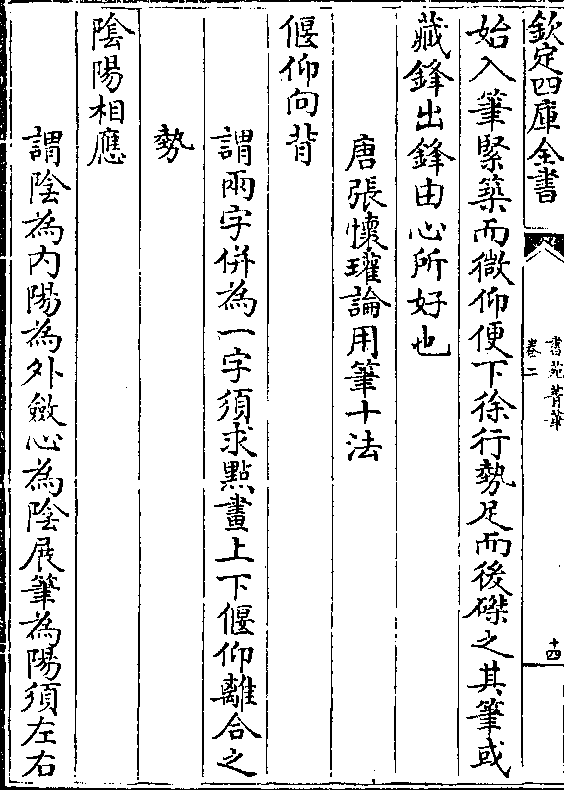 欽定四庫全書
書苑菁華
卷二
十四
始入筆緊築而微仰便下徐行勢足而後磔之其筆或
藏鋒出鋒由心所好也
唐張懷瓘論用筆十法
偃仰向背
謂兩字併為一字須求點畫上下偃仰離合之
勢
陰陽相應
謂陰為內陽為外斂心為陰展筆為陽須左右